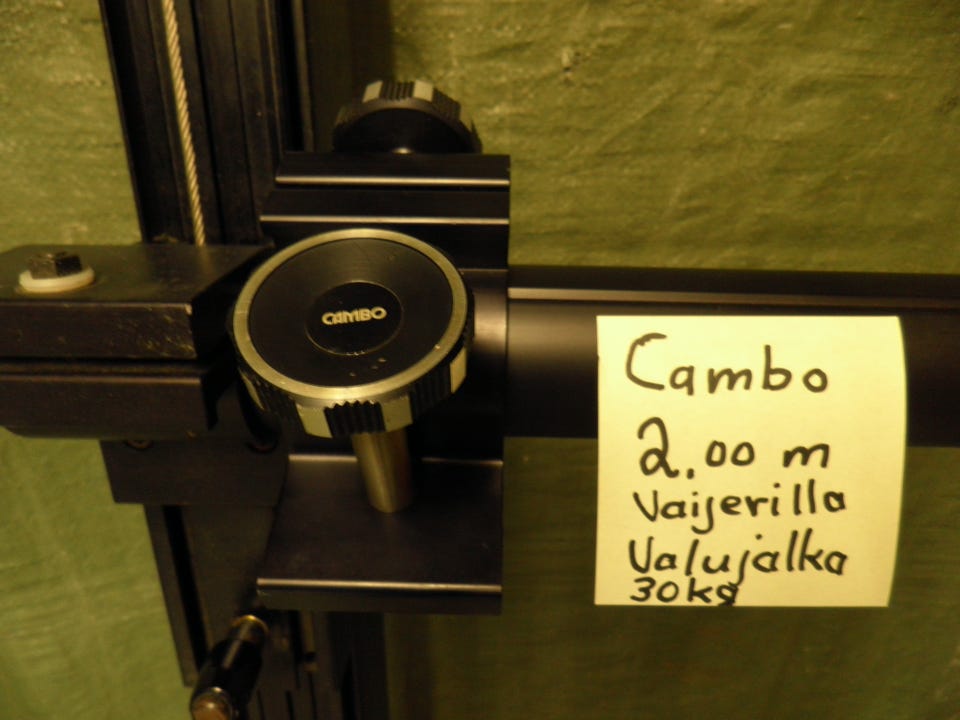 CAMBO
Cambo
2.00 m
Vaijerilla
Valujalka
30kg